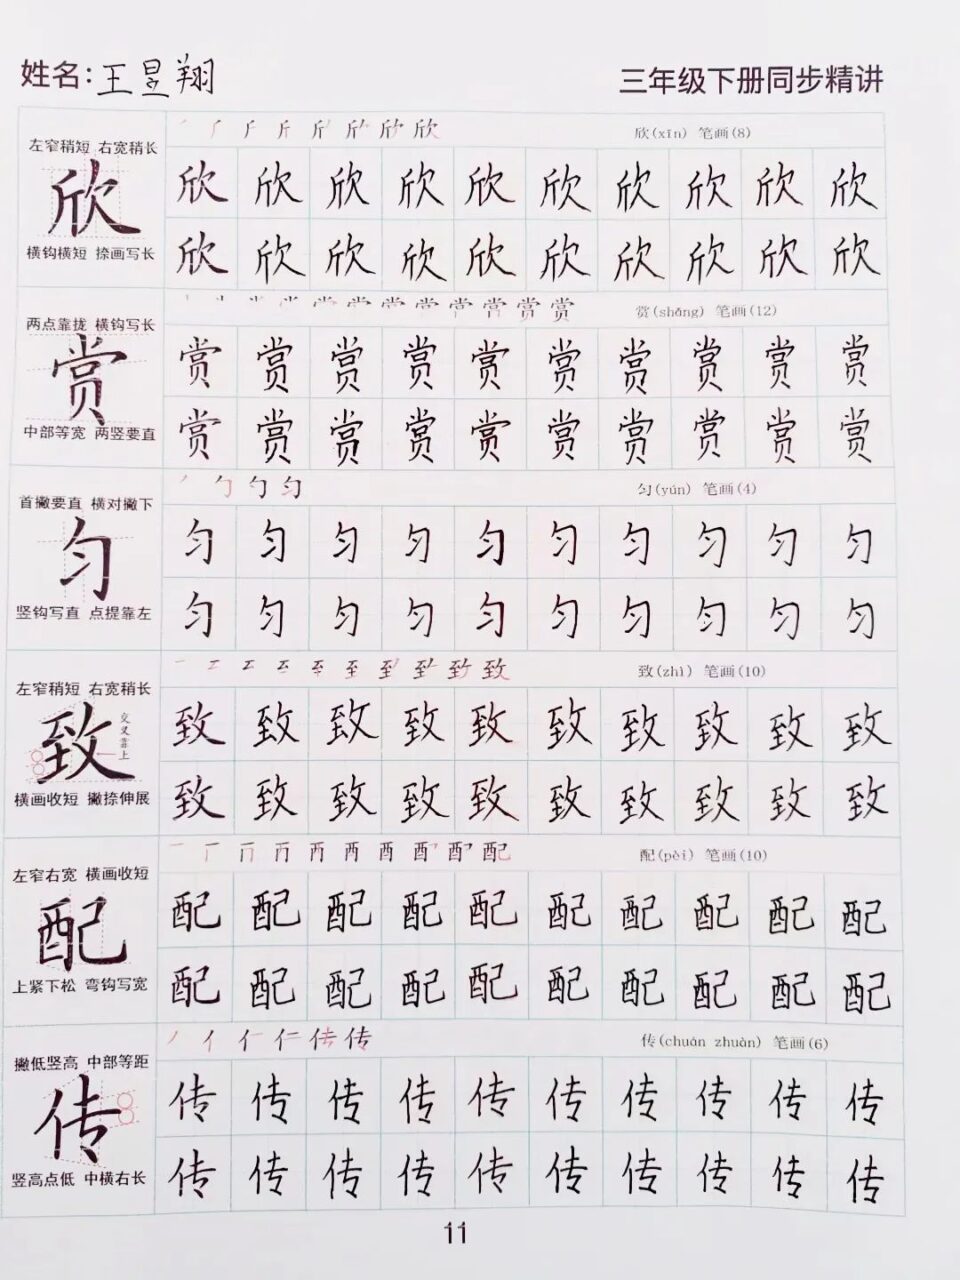 姓名：王昱翔
三年级下册同步精讲
欣(xīn) 笔画(8)
左窄稍短 右宽稍长
欣
横钩横短 捺画写长
欣欣欣欣欣欣欣欣欣欣
欣欣欣欣欣欣欣欣欣欣
赏(shǎng) 笔画(12)
两点靠拢 横钩写长
赏
中部等宽 两竖要直
赏赏赏赏赏赏赏赏赏赏
赏赏赏赏赏赏赏赏赏赏
匀(yún) 笔画(4)
首撇要直 横对撇下
匀
竖钩写直 点提靠左
匀匀匀匀匀匀匀匀匀匀
匀匀匀匀匀匀匀匀匀匀
致(zhì) 笔画(10)
左窄稍短 右宽稍长
致
交叉靠上
横画收短 撇捺伸展
致致致致致致致致致致
致致致致致致致致致致
配(pèi) 笔画(10)
左窄右宽 横画收短
配
上紧下松 弯钩写宽
配配配配配配配配配配
配配配配配配配配配配
传(chuán zhuàn) 笔画(6)
撇低竖高 中部等距
传
竖高点低 中横右长
传传传传传传传传传传
传传传传传传传传传传
11